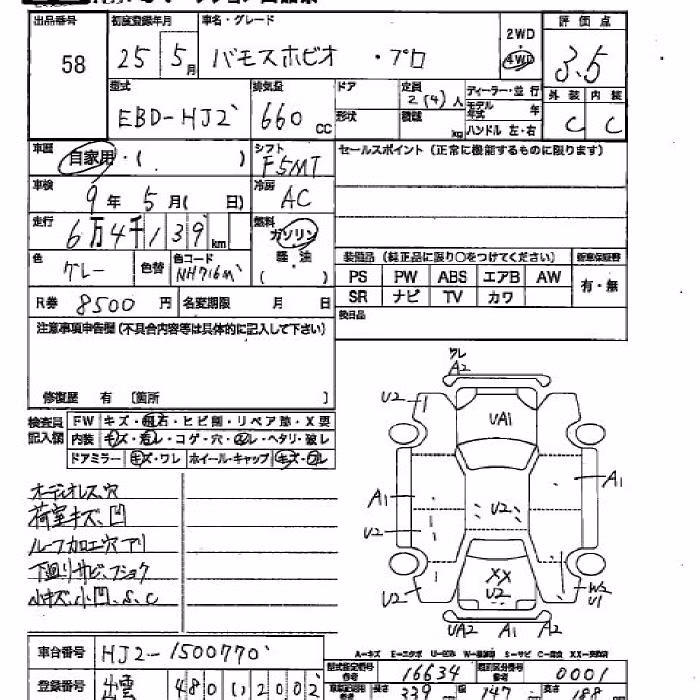 出品番号 初度登録年月 車名・グレード 2WD 評価点
58 25 5月 バモスホビオ ・プロ 4WD 3.5
型式 排気量 ドア 定員 2(4)人 ディーラー・並行 外装 内装
EBD-HJ2 660cc 形状 積載 kg モデル年式 年 C C
ハンドル 左・右
車歴 自家用・( ) シフト F5MT セールスポイント(正常に機能するものに限ります)
車検 9年 5月( 日) 冷房 AC
走行 6万4千139km 燃料 ガソリン
軽・油
( )
色 グレー 色替 色コード NH716M 装備品(純正品に限り○をつけてください) 新車保証書
PS PW ABS エアB AW 有・無
SR ナビ TV カワ
R券 8500円 名変期限 月 日 後日品
注意事項申告欄(不具合内容等は具体的に記入して下さい)
修復歴 有 〔箇所
検査員記入欄 FW キズ・飛石・ヒビ割・リペア跡・X要
内装 キズ・汚レ・コゲ・穴・ ・ヘタリ・破レ
ドアミラー キズ・ワレ ホイール・キャップ キズ・
オーディオレス、穴
荷室キズ、凹
ルーフ加工穴アリ
下廻りサビ、フショク
小キズ、小凹、S、C
ワレ
A2
U2
UA1
A1 A1
U2
U2
XX
U2
U2 W2
U1
UA2 A1 A2
車台番号 HJ2-1500770
A-キズ E-エクボ U-凹 W- S-サビ C-腐食 XX-交換済
登録番号 出雲 480 い 2002
型式指定番号 16634 類別区分番号 0001
長さ 339 cm 幅 147 cm 高さ 188